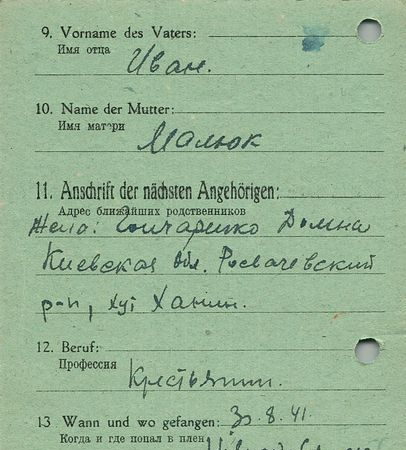 9. Vorname des Vaters:
Имя отца
Иван.
10. Name der Mutter:
Имя матери
Малюк
11. Anschrift der nächsten Angehörigen:
Адрес ближайших родственников
Жена: Гончаренко Домна
Киевская обл. Розважевский
р-н, хут Ханин.
12. Beruf:
Профессия
Крестьянин.
13 Wann und wo gefangen: 8.41.
Когда и где попал в плен